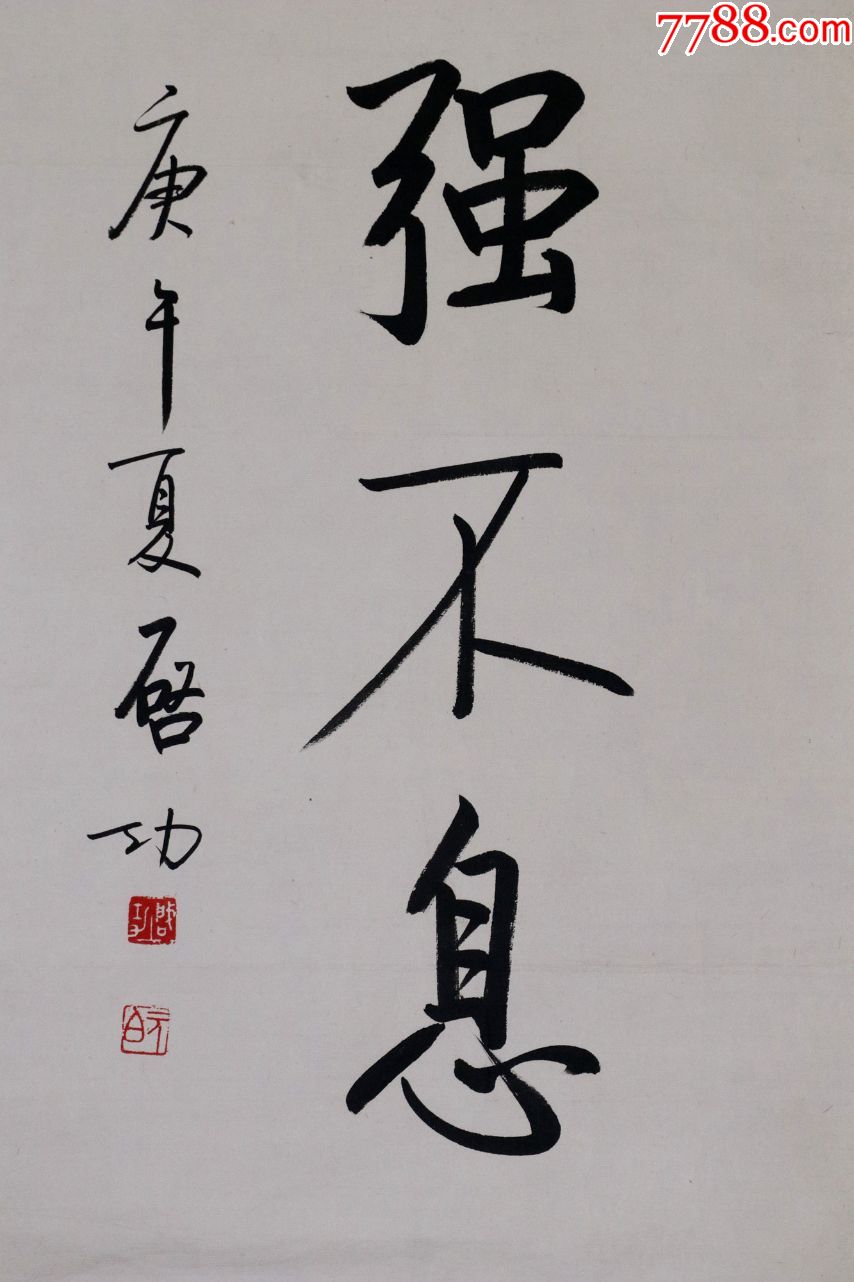 7788.com
强不息
庚午夏启功
启功
元白